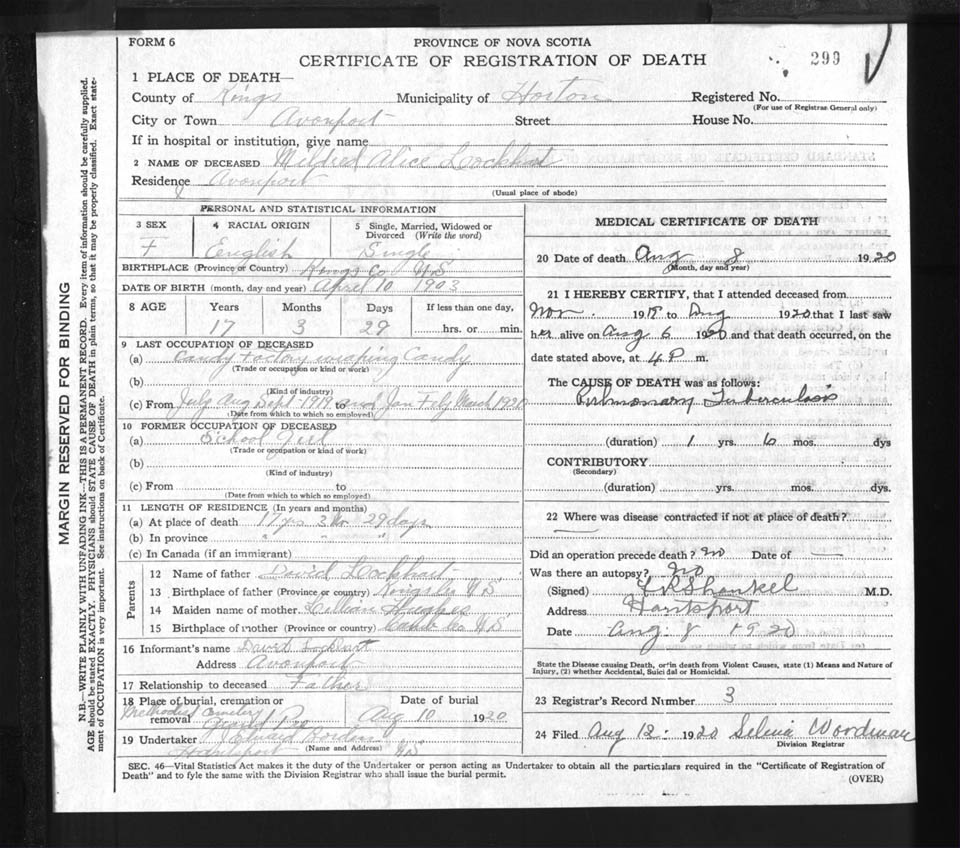 FORM 6
PROVINCE OF NOVA SCOTIA
CERTIFICATE OF REGISTRATION OF DEATH
299
1 PLACE OF DEATH—
County of Kings Municipality of Horton Registered No.
(For use of Registrar General only)
City or Town Avonport Street House No.
If in hospital or institution, give name
2 NAME OF DECEASED Mildred Alice Lockhart
Residence Avonport
(Usual place of abode)
PERSONAL AND STATISTICAL INFORMATION
3 SEX 4 RACIAL ORIGIN 5 Single, Married, Widowed or Divorced (Write the word)
F English Single
BIRTHPLACE (Province or Country) Kings Co N S
DATE OF BIRTH (month, day and year) April 10 1903
8 AGE Years Months Days If less than one day,
17 3 29 hrs. or min.
9 LAST OCCUPATION OF DECEASED
(a) Candy Factory making Candy
(Trade or occupation or kind or work)
(b)
(Kind of industry)
(c) From July Aug Sept 1919 to and Jan Feby March 1920
(Date from which to which so employed)
10 FORMER OCCUPATION OF DECEASED
(a) School Girl
(Trade or occupation or kind of work)
(b)
(Kind of industry)
(c) From to
(Date from which to which so employed)
11 LENGTH OF RESIDENCE (In years and months)
(a) At place of death 17 yrs 3 mo 29 days
(b) In province " " "
(c) In Canada (if an immigrant)
Parents
12 Name of father David Lockhart
13 Birthplace of father (Province or country) Kings Co N S
14 Maiden name of mother Lillian Hughes
15 Birthplace of mother (Province or country) Co N S
16 Informant's name David Lockhart
Address Avonport
17 Relationship to deceased Father
18 Place of burial, cremation or removal Date of burial
Methodist Cemetery
Grand Pre Aug 10 1920
19 Undertaker Edward
(Name and Address)
Hantsport N S
MEDICAL CERTIFICATE OF DEATH
20 Date of death Aug 8 1920
(Month, day and year)
21 I HEREBY CERTIFY, that I attended deceased from
Nov. 1918 to Aug 1920 that I last saw
her alive on Aug 6 1920 and that death occurred, on the
date stated above, at 4 P m.
The CAUSE OF DEATH was as follows:
Pulmonary Tuberculosis
(duration) 1 yrs. 6 mos. dys
CONTRIBUTORY
(Secondary)
(duration) yrs. mos. dys.
22 Where was disease contracted if not at place of death?
Did an operation precede death? no Date of —
Was there an autopsy? No
(Signed) Shankel M.D.
Address Hantsport
Date Aug 8 1920
State the Disease causing Death, or in death from Violent Causes, state (1) Means and Nature of
Injury, (2) whether Accidental, Suicidal or Homicidal.
23 Registrar's Record Number 3
24 Filed Aug 12 1920 Selina Woodman
Division Registrar
SEC. 46—Vital Statistics Act makes it the duty of the Undertaker or person acting as Undertaker to obtain all the particulars required in the "Certificate of Registration of
Death" and to fyle the same with the Division Registrar who shall issue the burial permit.
(OVER)
MARGIN RESERVED FOR BINDING
N.B.—WRITE PLAINLY WITH UNFADING INK—THIS IS A PERMANENT RECORD. Every item of information should be carefully supplied.
AGE should be stated EXACTLY. PHYSICIANS should STATE CAUSE OF DEATH in plain terms, so that it may be properly classified. Exact state-
ment of OCCUPATION is very important. See instructions on back of Certificate.